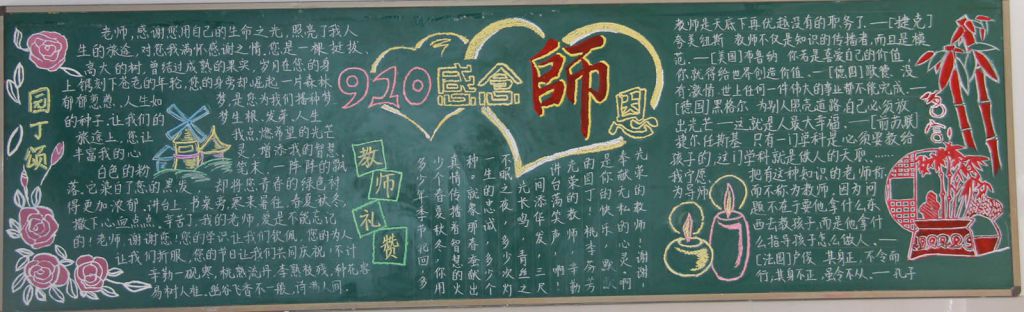 园丁颂
老师,感谢您用自己的生命之光,照亮了我人
生的旅途,对您我满怀感谢之情。您是一棵挺拔、
高大的树,曾经过成熟的果实,岁月在您的身
上镌刻下苍老的年轮,您的身旁却崛起一片森林
郁郁葱葱。人生如
梦,是您为我们播种梦
的种子,让我们的
梦生根、发芽,人生
旅途上,您让
我点燃希望的光芒
丰富我的心
灵,增添我的智慧
白色的粉
笔末,一阵阵的飘
落,它染白了您的黑发
却将您青春的绿色衬
得更加浓郁。讲台上,书桌旁,寒来暑往,春夏秋冬,
撒下心血点点。辛苦了,我的老师,爱是不能忘记
的!老师,谢谢您!您的学识让我们钦佩,您的为人
让我们折服,您的节日让我们共同庆祝!不计
辛勤一砚寒,桃熟流丹,李熟枝残,种花容
易树人难。幽谷飞香不一般,诗满人间
910感念
師
恩
教师礼赞
光荣的教师!谢谢,
奉献无私的心灵,啊,
是你的快乐,默默
的园丁!桃李芬芳
光荣的教师!辛勤
讲台荣声
间添华发,三尺
光长鸣,青丝之
不眠之夜,多少次灯
一生的忠诚,多少个
种,就象那春蚕献出
真情传播着智慧的火
少个春夏秋冬,你用
多少年季节轮回,多
教师是天底下再优越没有的职务了。—[捷克]
夸美纽斯 教师不仅是知识的传播者,而且是模
范。—[美国]布鲁纳 你若是喜爱自己的价值,
你就得给世界创造价值。—[德国]歌德。没
有激情,世上任何一件伟大的事业都不能完成。—
[德国]黑格尔 为别人照亮道路,自己必须放
出光芒——这就是人最大幸福。—[前苏联]
捷尔任斯基 只有一门学科是必须要教给
孩子的,这门学科就是做人的天职……
我宁愿
把有这种知识的老师称
为导师
而不称为教师,因为问
题不在于要他拿什么东
西去教孩子,而是他拿什
么指导孩子怎么做人。—
[法国]卢梭 其身正,不令而
行;其身不正,虽令不从。—孔子
名言